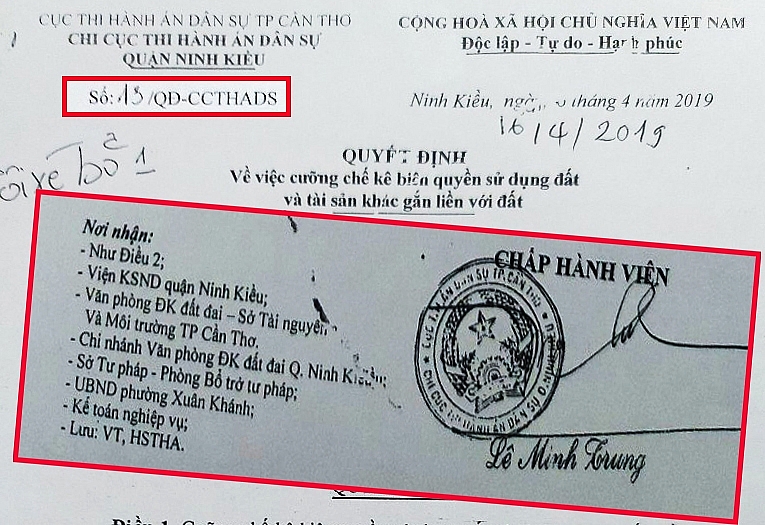 CỤC THI HÀNH ÁN DÂN SỰ TP CẦN THƠ
CHI CỤC THI HÀNH ÁN DÂN SỰ
QUẬN NINH KIỀU
Số: 13/QĐ-CCTHADS
CỘNG HOÀ XÃ HỘI CHỦ NGHĨA VIỆT NAM
Độc lập - Tự do - Hạnh phúc
Ninh Kiều, ngày tháng 4 năm 2019
16/4/2019
QUYẾT ĐỊNH
Về việc cưỡng chế kê biên quyền sử dụng đất
và tài sản khác gắn liền với đất
Nơi nhận:
- Như Điều 2;
- Viện KSND quận Ninh Kiều;
- Văn phòng ĐK đất đai – Sở Tài nguyên
Và Môi trường TP Cần Thơ.
- Chi nhánh Văn phòng ĐK đất đai Q. Ninh Kiều;
- Sở Tư pháp - Phòng Bổ trợ tư pháp;
- UBND phường Xuân Khánh;
- Kế toán nghiệp vụ;
- Lưu: VT, HSTHA.
CHẤP HÀNH VIÊN
CỤC THI HÀNH ÁN DÂN SỰ TP. CẦN THƠ
CHI CỤC THI HÀNH ÁN DÂN SỰ
Lê Minh Trung